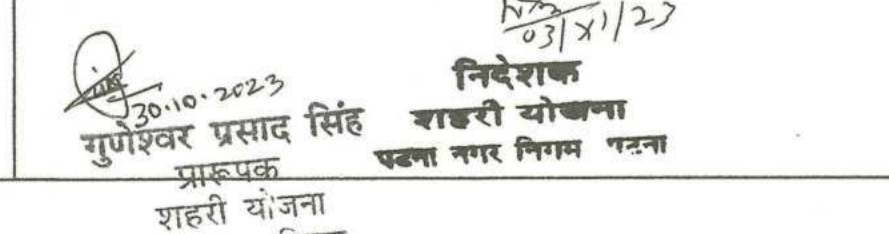 03/XI/23
30.10.2023
गुणेश्वर प्रसाद सिंह
प्रारूपक
शहरी योजना
निदेशक
शहरी योजना
पटना नगर निगम पटना